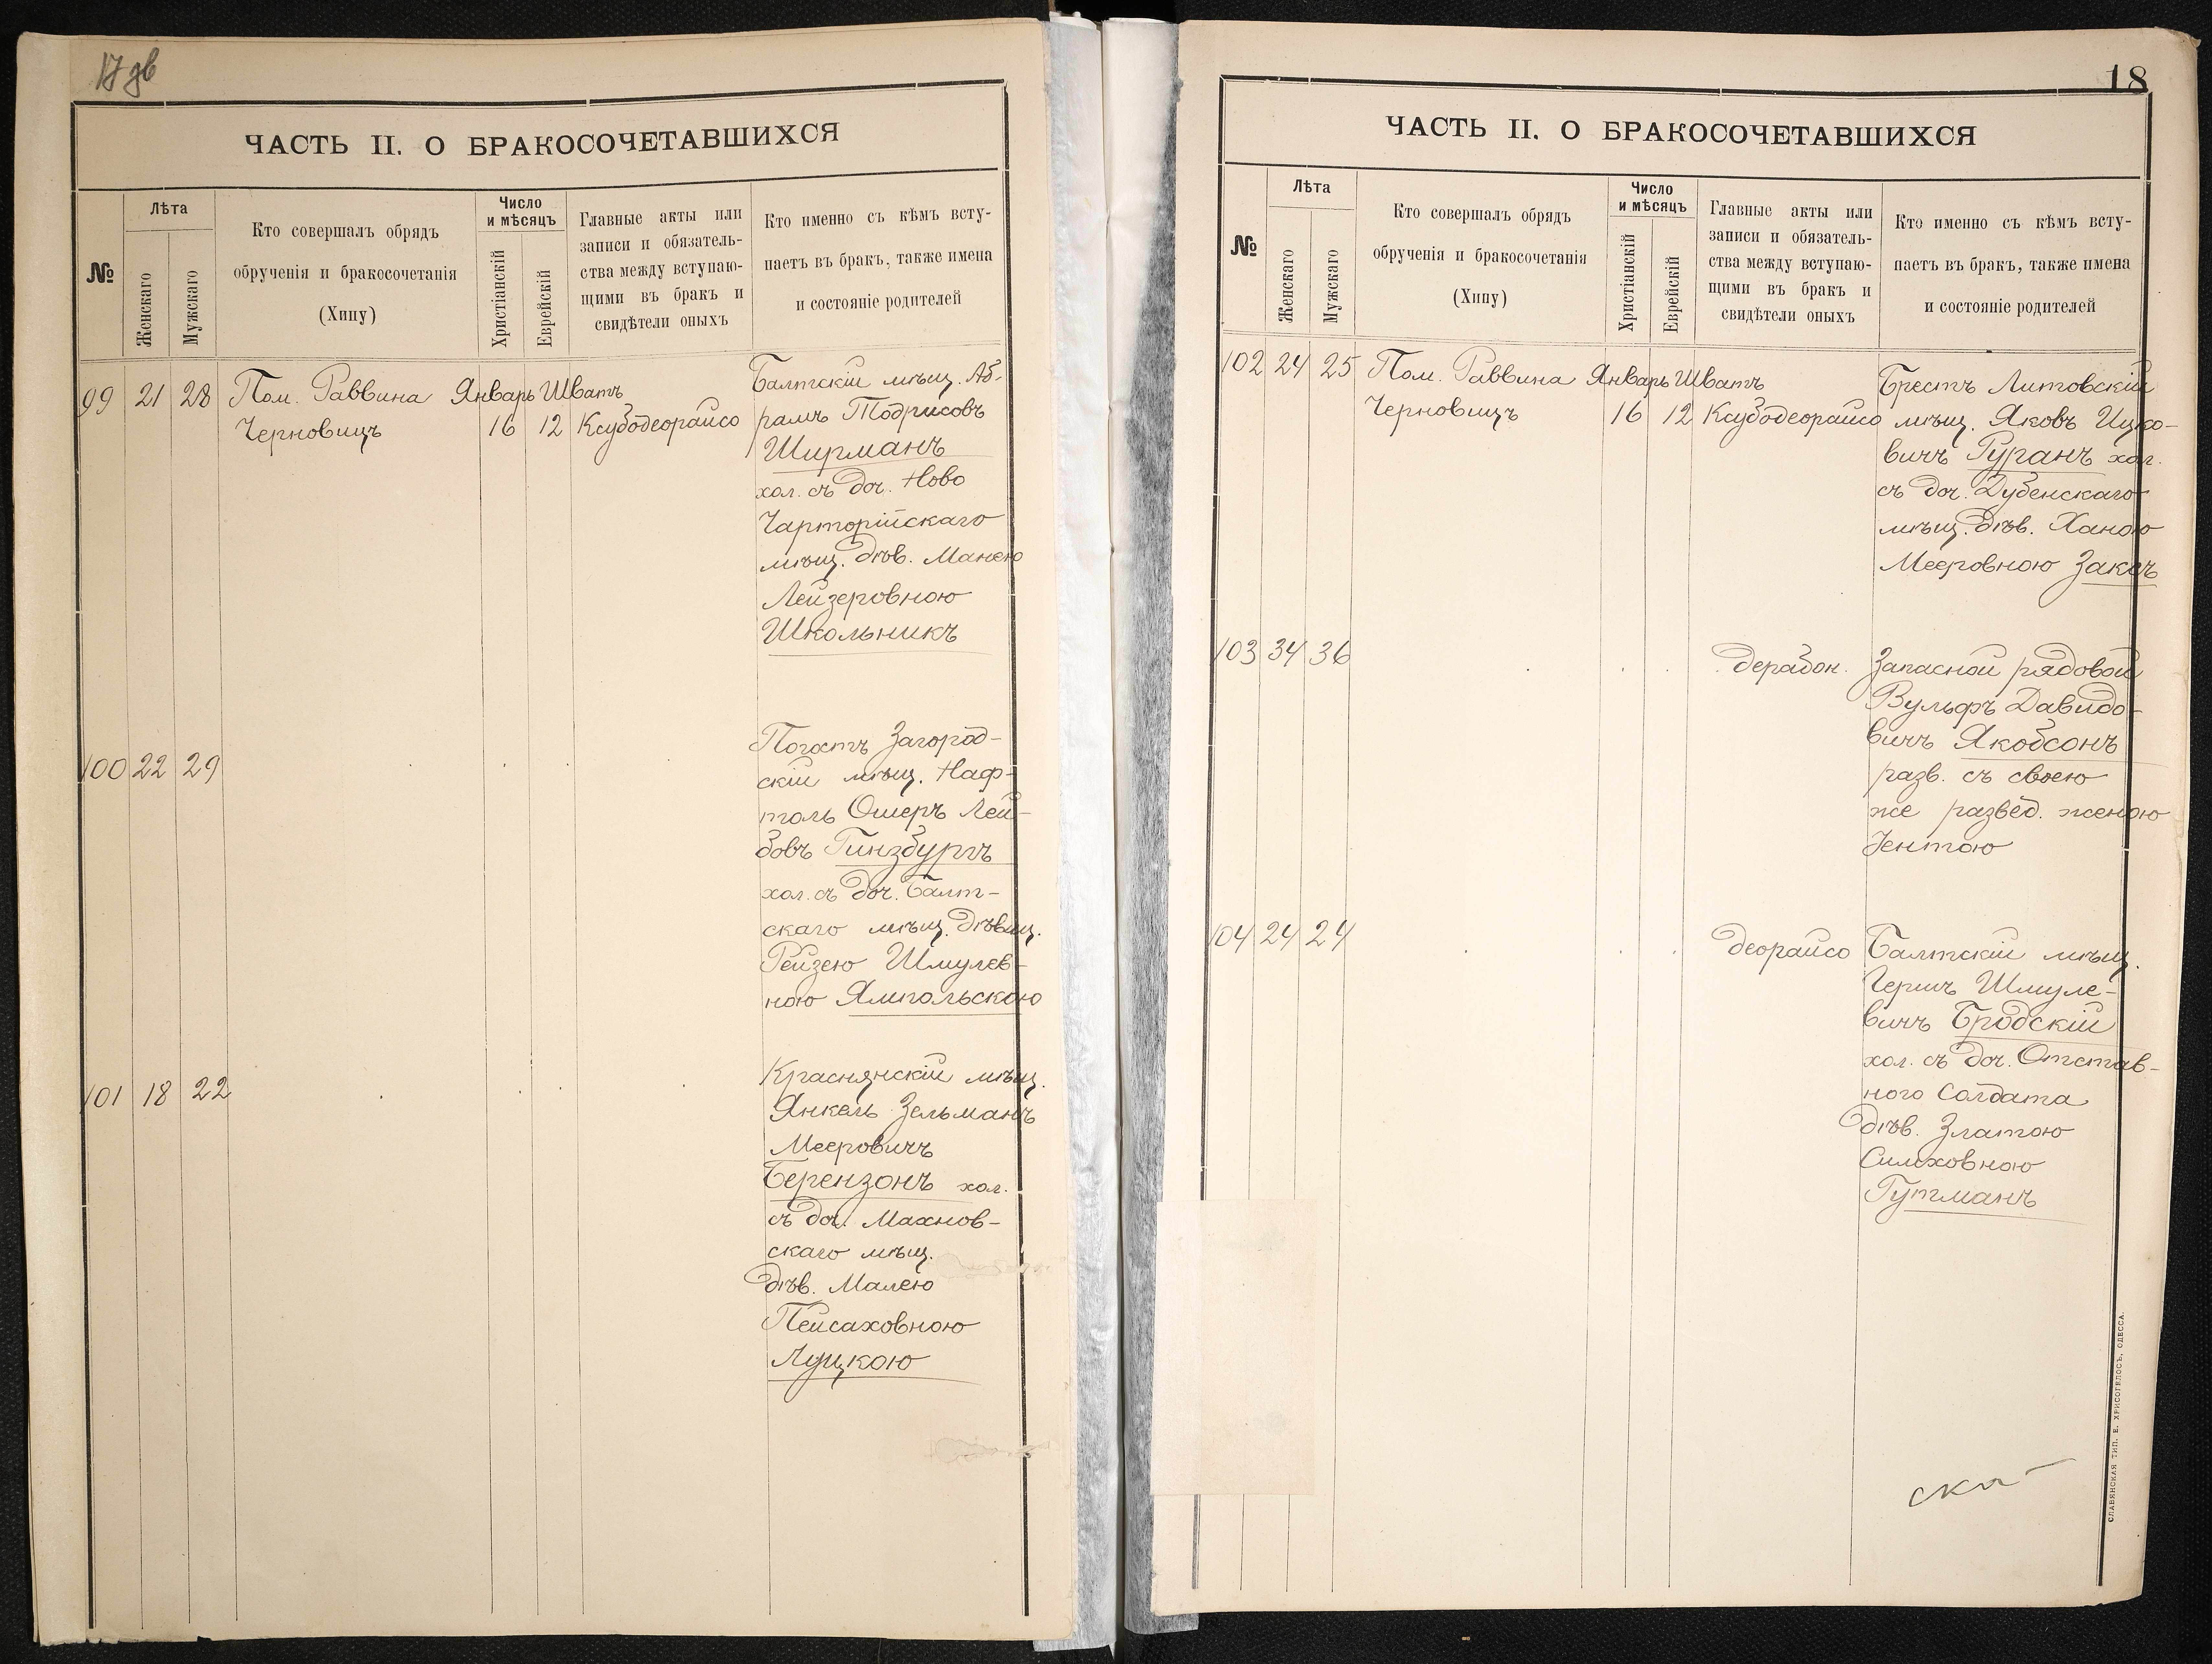 17
ЧАСТЬ II. О БРАКОСОЧЕТАВШИХСЯ
№
Лѣта
Женскаго
Мужскаго
Кто совершалъ обрядъ
обрученія и бракосочетанія
(Хипу)
Число
и мѣсяцъ
Христіанскій
Еврейскій
Главные акты или
записи и обязатель-
ства между вступаю-
щими въ бракъ и
свидѣтели оныхъ
Кто именно съ кѣмъ всту-
паетъ въ бракъ, также имена
и состояніе родителей
99 21 28 Пом. Раввина Январь Шватъ
Черновицъ 16 12 Ксубодеорайсо
Балтскій мѣщ. Аб-
рамъ Тодрисовъ
Ширманъ
хол. съ доч. Ново
Чарторійскаго
мѣщ. дѣв. Манею
Лейзеровною
Школьникъ
100 22 29
Погостъ Загород-
скій мѣщ. Наф-
толь Ошеръ Лей-
бовъ Гинзбургъ
хол. съ доч. Балт-
скаго мѣщ. дѣвиц.
Рейзею Шмулев-
ною Ямпольскою
101 18 22
Краснянскій мѣщ.
Янкель Зельманъ
Мееровичъ
Берензонъ хол.
съ доч. Махнов-
скаго мѣщ.
дѣв. Малею
Пейсаховною
Луцкою
18
ЧАСТЬ II. О БРАКОСОЧЕТАВШИХСЯ
№
Лѣта
Женскаго
Мужскаго
Кто совершалъ обрядъ
обрученія и бракосочетанія
(Хипу)
Число
и мѣсяцъ
Христіанскій
Еврейскій
Главные акты или
записи и обязатель-
ства между вступаю-
щими въ бракъ и
свидѣтели оныхъ
Кто именно съ кѣмъ всту-
паетъ въ бракъ, также имена
и состояніе родителей
102 24 25 Пом. Раввина Январь Шватъ
Черновицъ 16 12 Ксубодеорайсо
Брестъ Литовскій
мѣщ. Яковъ Ицко-
вичъ Гуранъ хол.
съ доч. Дубенскаго
мѣщ. дѣв. Ханою
Мееровною Заксъ
103 34 36 дерабон.
Запасной рядовой
Вульфъ Давидо-
вичъ Якобсонъ
разв. съ своею
же развед. женою
Іентою
104 24 24 деорайсо
Балтскій мѣщ.
Гершъ Шмуле-
вичъ Бродскій
хол. съ доч. Отстав-
ного Солдата
дѣв. Златою
Симховною
Гутманъ
СЛАВЯНСКАЯ ТИП. Е. ХРИСОГЕЛОСЪ, ОДЕССА.